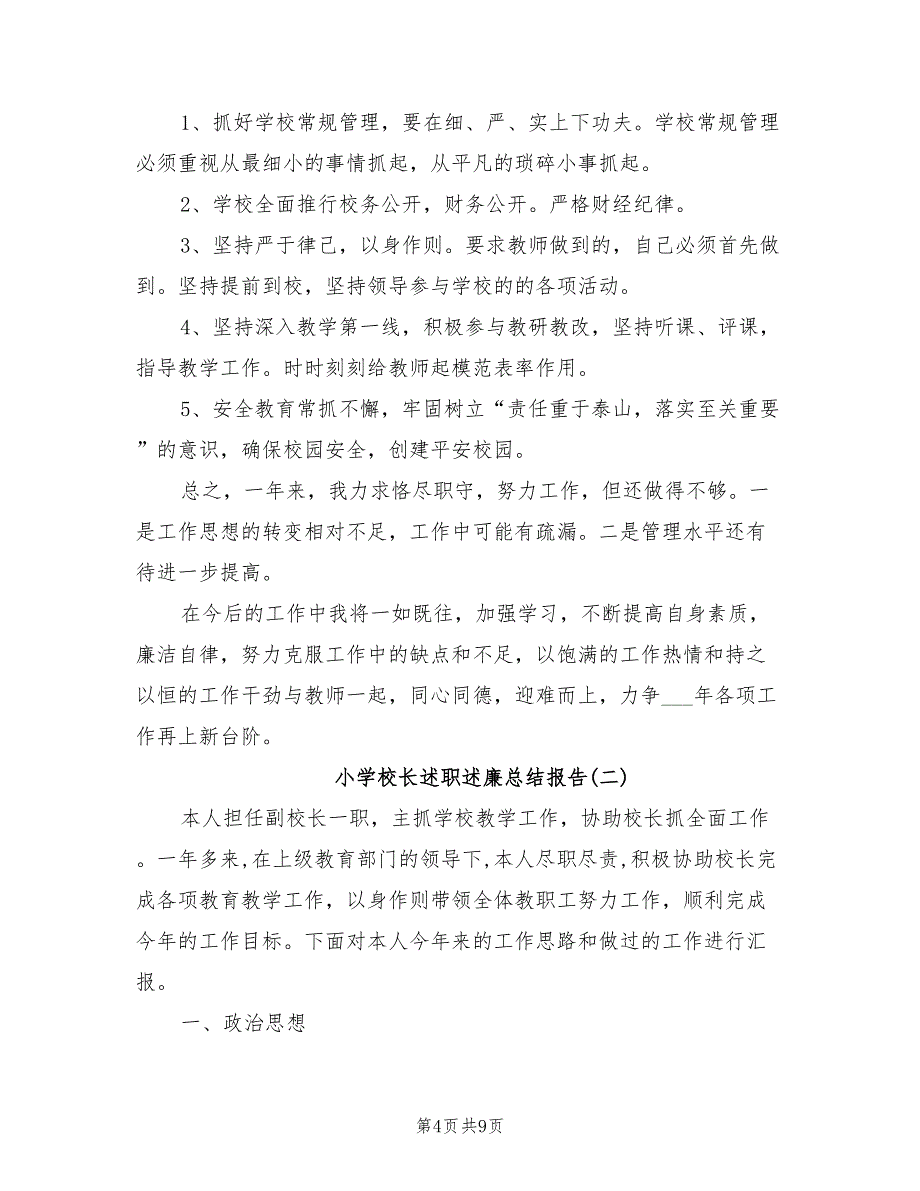 1、抓好学校常规管理，要在细、严、实上下功夫。学校常规管理
必须重视从最细小的事情抓起，从平凡的琐碎小事抓起。
2、学校全面推行校务公开，财务公开。严格财经纪律。
3、坚持严于律己，以身作则。要求教师做到的，自己必须首先做
到。坚持提前到校，坚持领导参与学校的的各项活动。
4、坚持深入教学第一线，积极参与教研教改，坚持听课、评课，
指导教学工作。时时刻刻给教师起模范表率作用。
5、安全教育常抓不懈，牢固树立“责任重于泰山，落实至关重要
”的意识，确保校园安全，创建平安校园。
总之，一年来，我力求恪尽职守，努力工作，但还做得不够。一
是工作思想的转变相对不足，工作中可能有疏漏。二是管理水平还有
待进一步提高。
在今后的工作中我将一如既往，加强学习，不断提高自身素质，
廉洁自律，努力克服工作中的缺点和不足，以饱满的工作热情和持之
以恒的工作干劲与教师一起，同心同德，迎难而上，力争___年各项工
作再上新台阶。
小学校长述职述廉总结报告(二)
本人担任副校长一职，主抓学校教学工作，协助校长抓全面工作
。一年多来,在上级教育部门的领导下,本人尽职尽责,积极协助校长完
成各项教育教学工作，以身作则带领全体教职工努力工作，顺利完成
今年的工作目标。下面对本人今年来的工作思路和做过的工作进行汇
报。
一、政治思想
第4页共9页